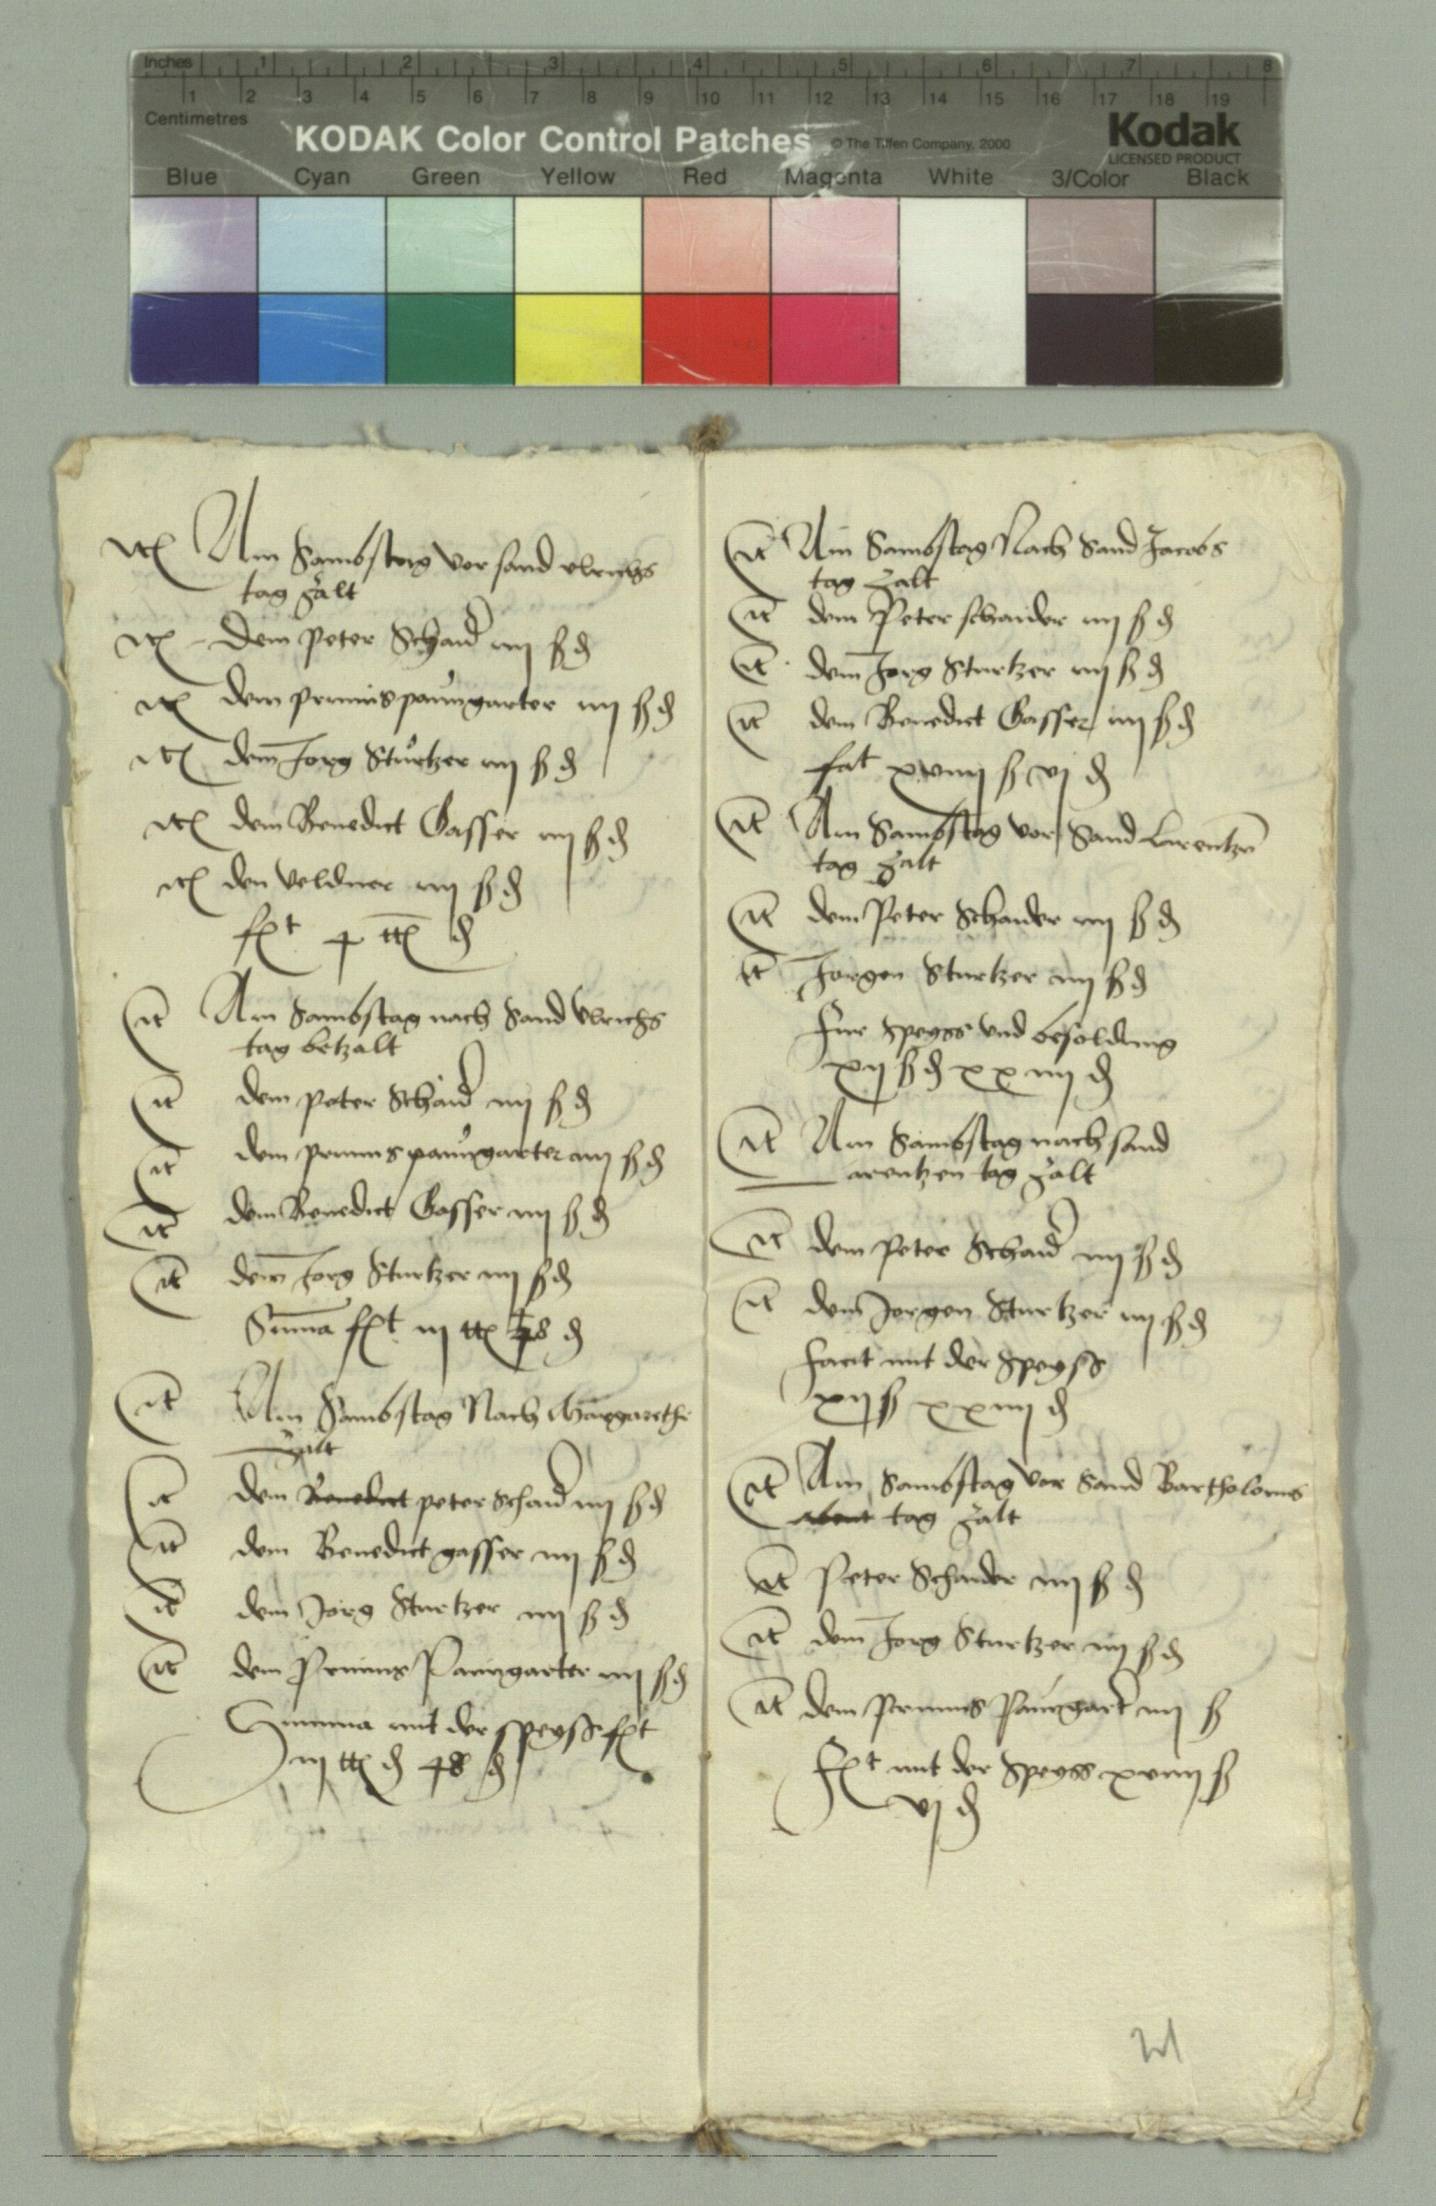 Inches 1 2 3 4 5 6 7 8
1 2 3 4 5 6 7 8 9 10 11 12 13 14 15 16 17 18 19
Centimetres
KODAK Color Control Patches © The Tiffen Company, 2000 Kodak
LICENSED PRODUCT
Blue Cyan Green Yellow Red Magenta White 3/Color Black
Itẽ Am Sambstag vor sand vlrichs
tag zalt
Itẽ dem Peter Schaid iiij ß ₰
Itẽ dem primus paumgarter iiij ß ₰
Itẽ dem Jorg Sturtzer iiij ß ₰
Itẽ dem Benedict Gasser iiij ß ₰
Itẽ den veldner iiij ß ₰
It Am Sambstag nach Sand vlrichs
tag betzalt
It dem peter Schaid iiij ß ₰
It dem primus paumgarter iiij ß ₰
It dem Benedict Gasser iiij ß ₰
It dem Jorg Sturtzer iiij ß ₰
Summa
It Am Sambstag Nach Margarethe
zalt
It dem Benedict peter schaid iiij ß ₰
It dem Benedict gasser iiij ß ₰
It dem Jorg Sturtzer iiij ß ₰
It dem Primus Paumgarter iiij ß ₰
Summa mit der speyss
It Am Sambstag Nach Sand Jacobs
tag zalt
It dem Peter schaider iiij ß ₰
It dem Jorg Sturtzer iiij ß ₰
It dem Benedict Gasser iiij ß ₰
fat xviiij ß vj ₰
It Am Sambstag vor Sand Lurentzn
tag zalt
It dem Peter Schaider iiij ß ₰
It Jorgen Sturtzer iiij ß ₰
fur speyss vnd besoldung
xij ß ₰ xxiiij ₰
It Am Sambstag nach sand
arentzen tag zalt
It dem peter Schaid iiij ß ₰
It dem Jorgen Sturtzer iiij ß ₰
facit mit der speyss
xij ß xxiiij ₰
It Am Sambstag vor Sand Bartholomes
abent tag zalt
It Peter Schaider iiij ß ₰
It dem Jorg Sturtzer iiij ß ₰
It dem primus Paumgart iiij ß
mit der speyss xviiij ß
vj ₰